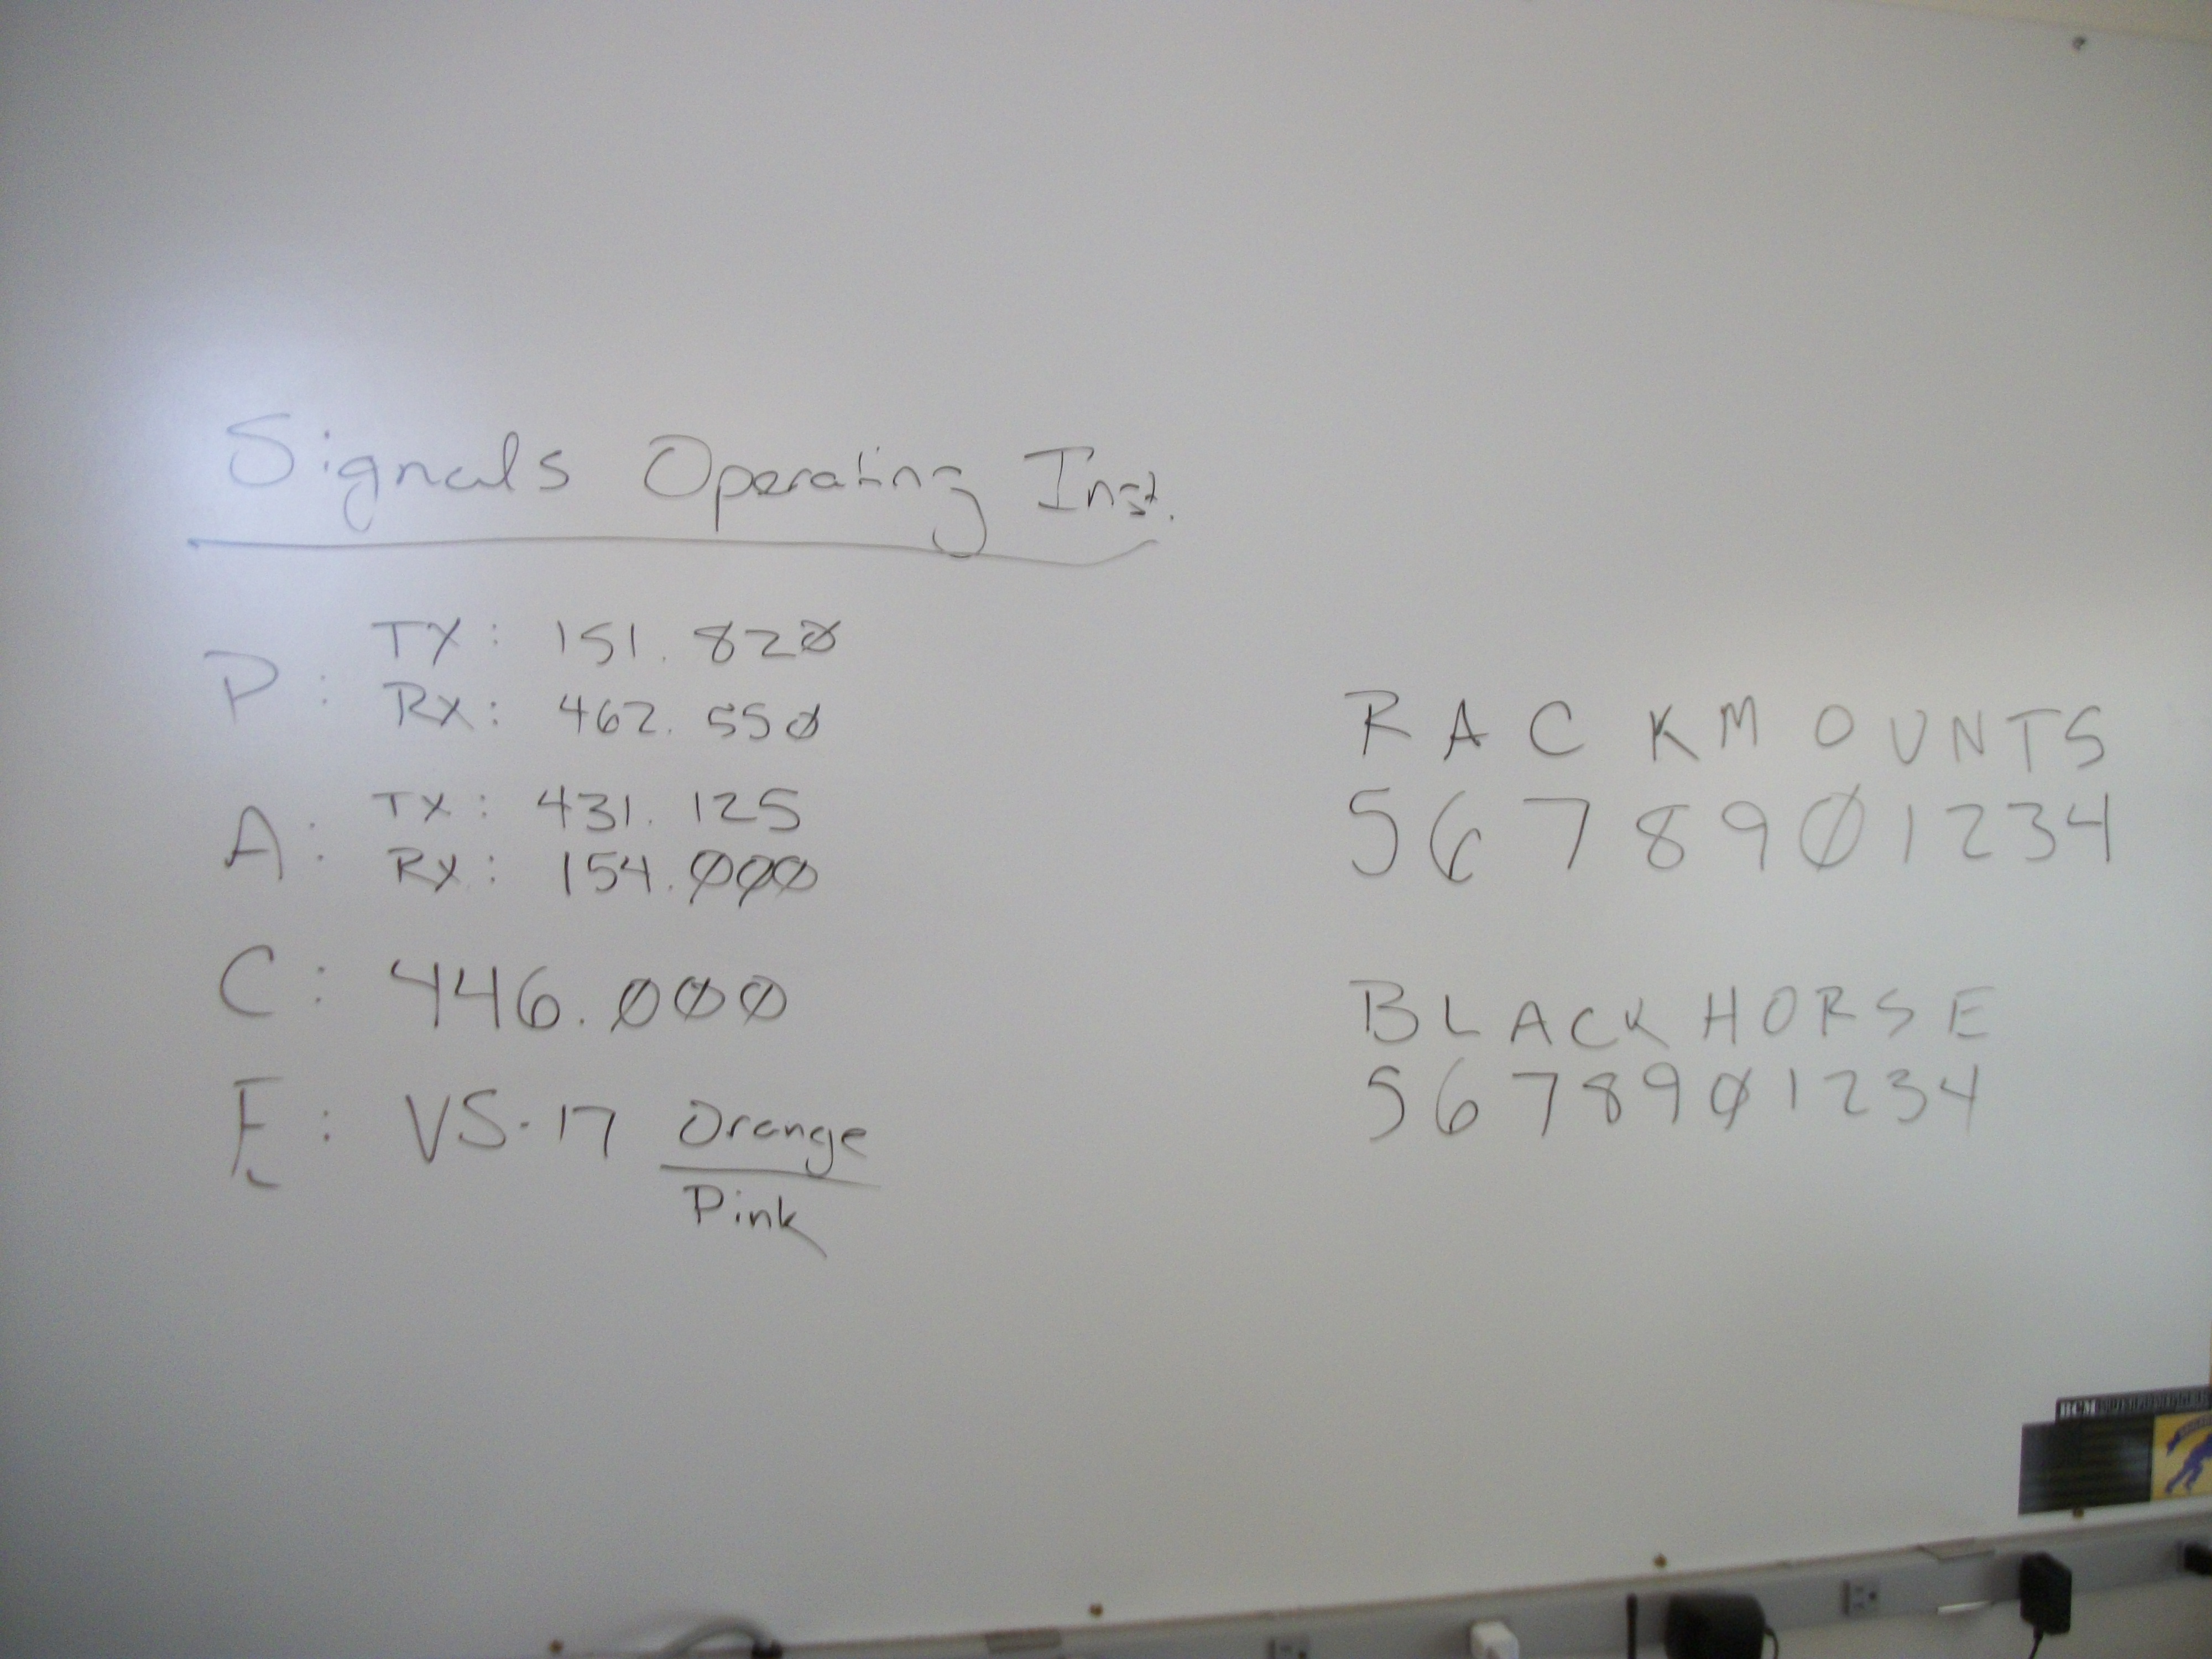 Signals Operating Inst.
P: TX: 151.820
RX: 462.550
A: TX: 431.125
RX: 154.000
C: 446.000
E: VS-17 Orange
Pink
RACKMOUNTS
5678901234
BLACKHORSE
5678901234